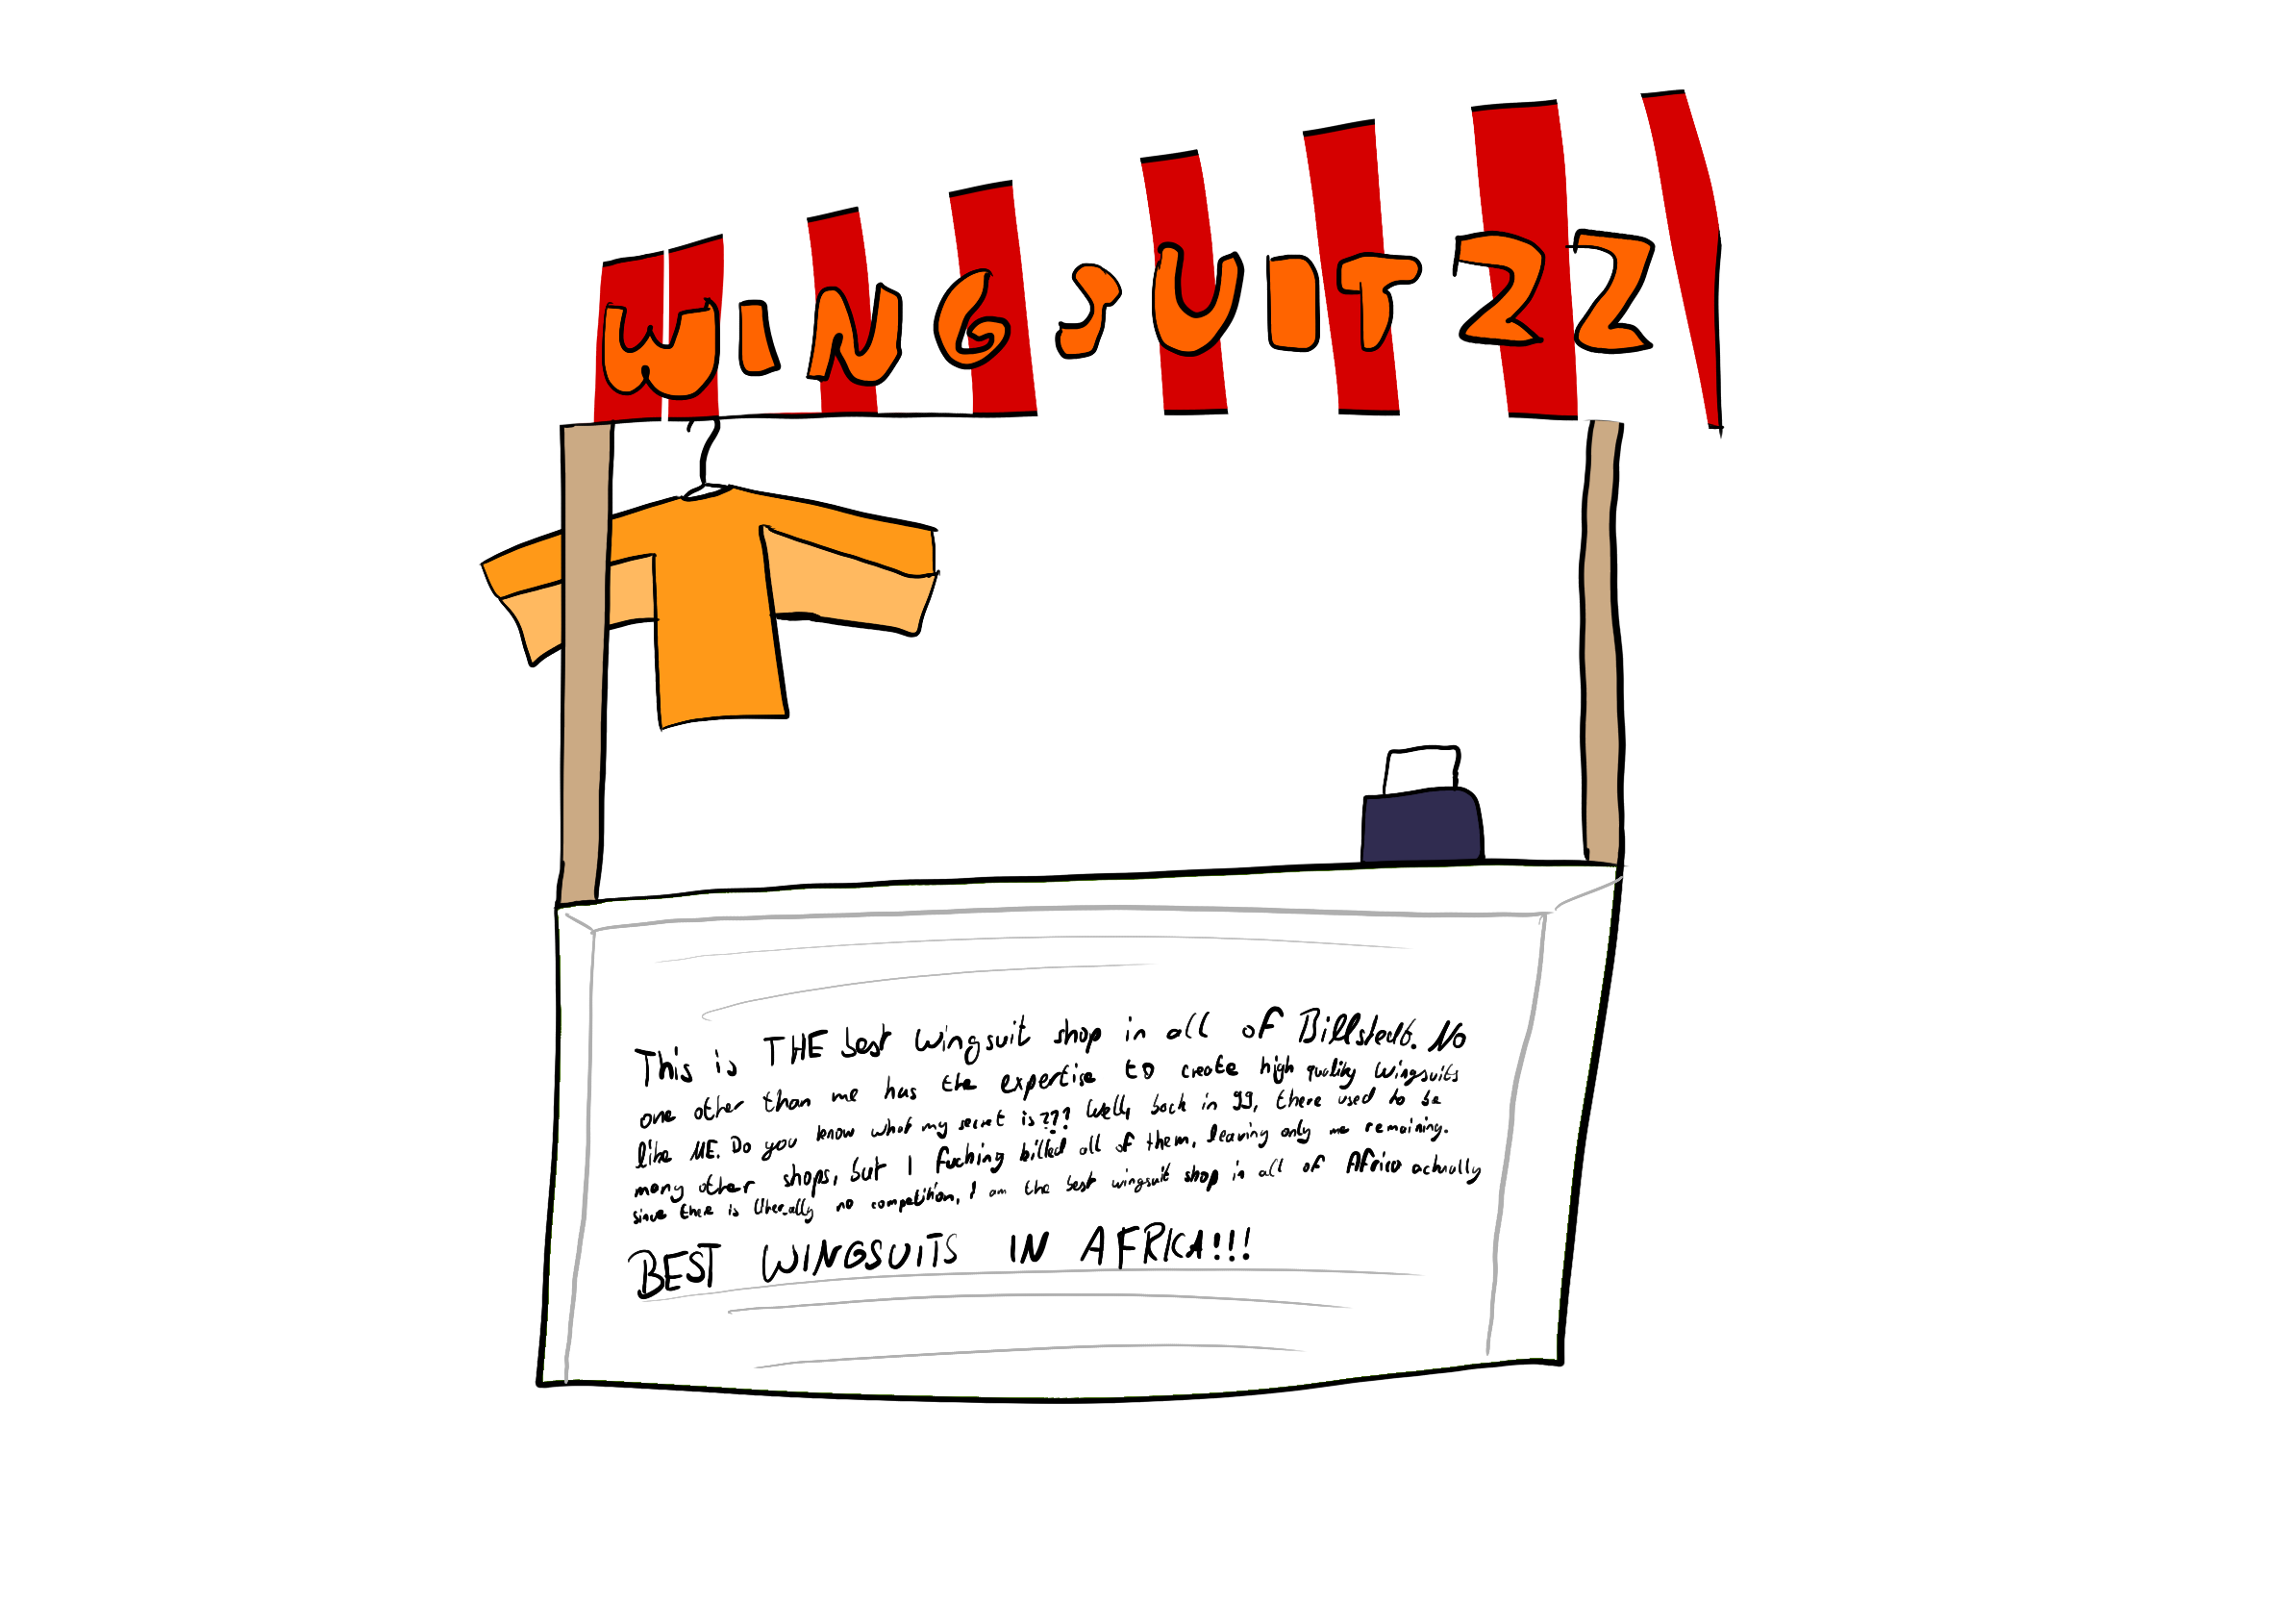 WINGSUITZZ
This is THE best wingsuit shop in all of Billstedt. No
one other than me has the expertise to create high quality wingsuits
like ME. Do you know what my secret is??? Well, back in 99, there used to be
many other shops, but I fucking killed all of them, leaving only me remaining.
since there is literally no competition, I am the best wingsuit shop in all of Africa actually
BEST WINGSUITS IN AFRICA!!!